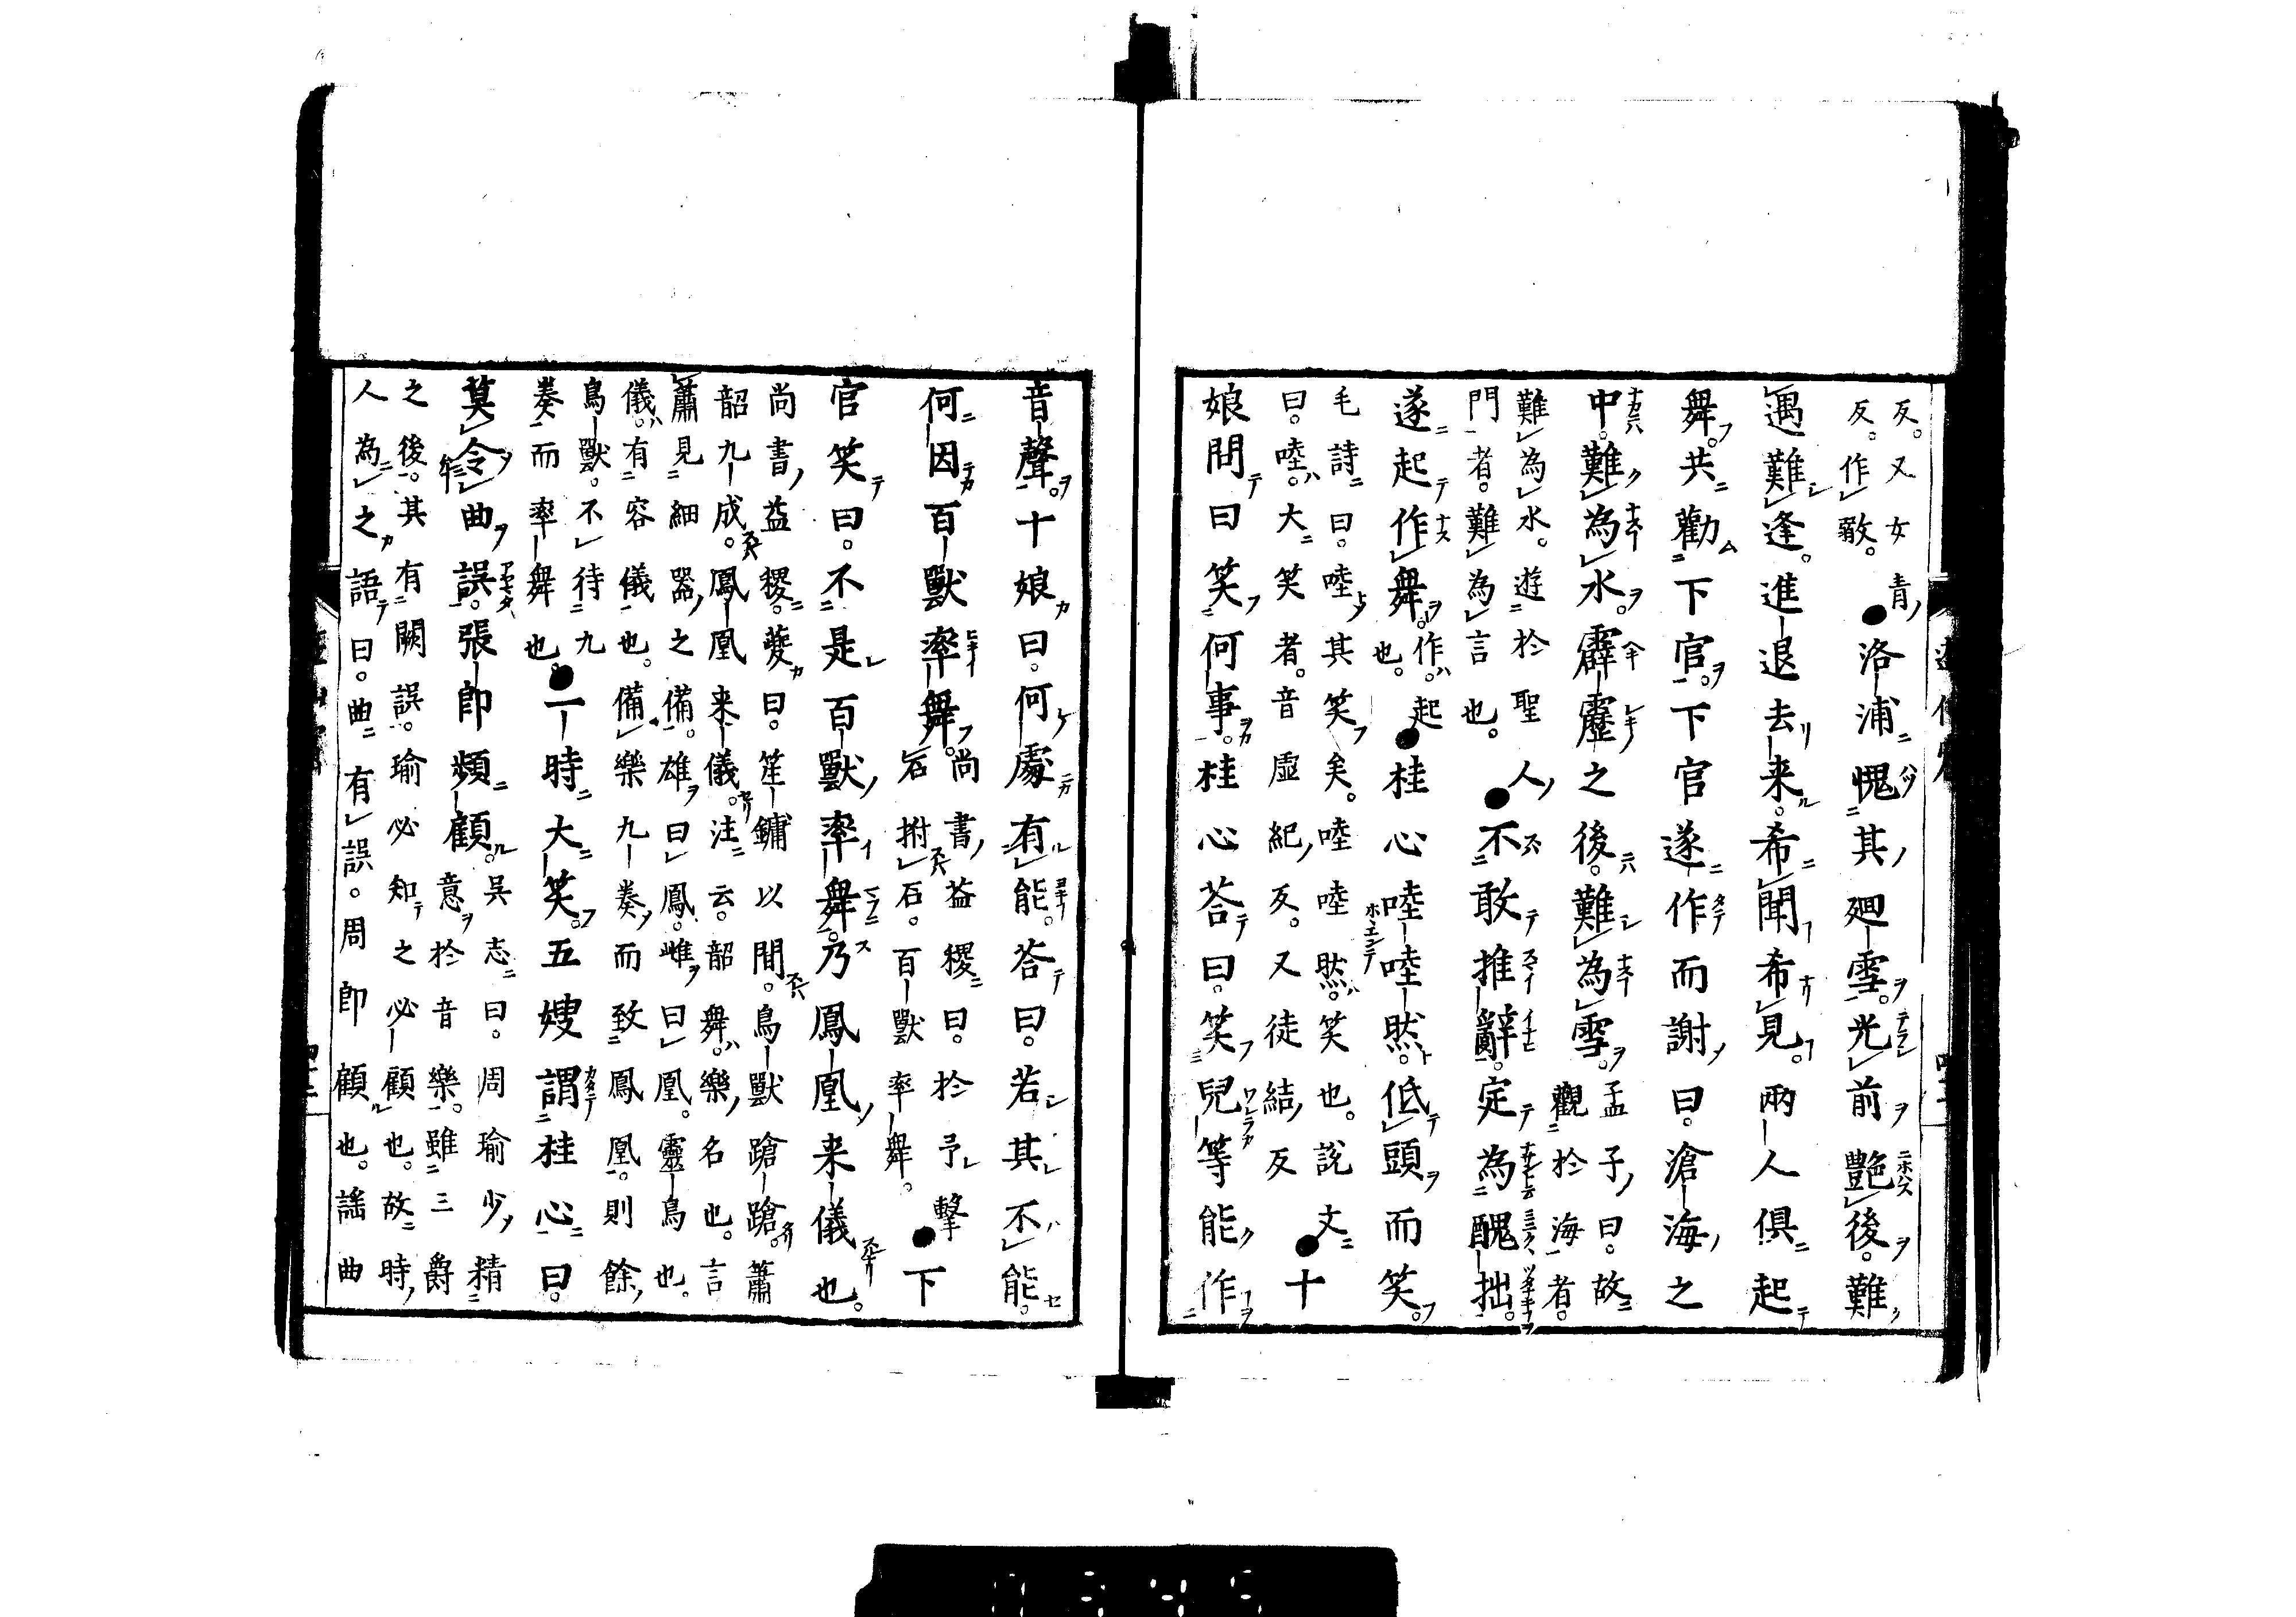 反。又女青
反。作敪。●洛浦愧其廻雪。光前艶後。難
遇難逢。進退去来。希聞希見。兩人俱起
舞。共勸下官。下官遂作而謝曰。滄海之
中。難為水。霹靂之後。難為雪。孟子曰。故觀於海者。
難為水。遊於聖人
門者。難為言也。●不敢推辭。定為醜拙。
遂起作舞。作。起也。●桂心嘊嘊然。低頭而笑。
毛詩曰。嘊其笑矣。嘊嘊然。笑也。説文
曰。嘊。大笑者。音虚紀反。又徒結反●十
娘問曰笑何事。桂心荅曰。笑兒等能作
音聲。十娘曰。何處有能。荅曰。若其不能。
何因百獸率舞。尚書益稷曰。於予擊石拊石。百獸率舞。●下
官笑曰。不是百獸率舞。乃鳳凰来儀也。
尚書益稷。夔曰。笙鏞以間。鳥獸蹌蹌。蕭
韶九成。鳳凰来儀。注云。韶舞。樂名也。言
蕭見細器之備。雄曰鳳。雌曰凰。靈鳥也。
儀。有容儀也。備樂九奏而致鳳凰。則餘
鳥獸。不待九
奏而率舞也。●一時大笑。五嫂謂桂心曰。
莫令曲誤。張郎頻顧。呉志曰。周瑜少精意於音樂。雖三爵
之後。其有闕誤。瑜必知之必顧也。故時
人為之語曰。曲有誤。周郎顧也。謡曲